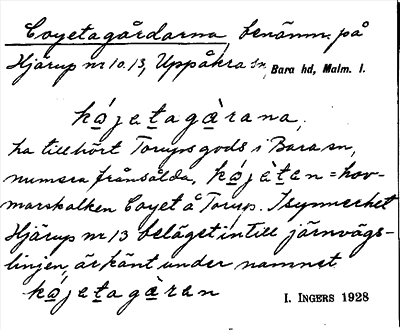 Coyetagårdarna, benämn. på
Hjärup nr 10. 13, Uppåkra sn, Bara hd, Malm. l.
kǻjetagärana,
ha tillhört Torups gods i Bara sn,
numera frånsålda, kǻjèten = hov-
marskalken Coyet å Torup. I synnerhet
Hjärup nr 13 beläget intill järnvägs-
linjen, är känt under namnet
kǻjetagä̀ran
I. INGERS 1928